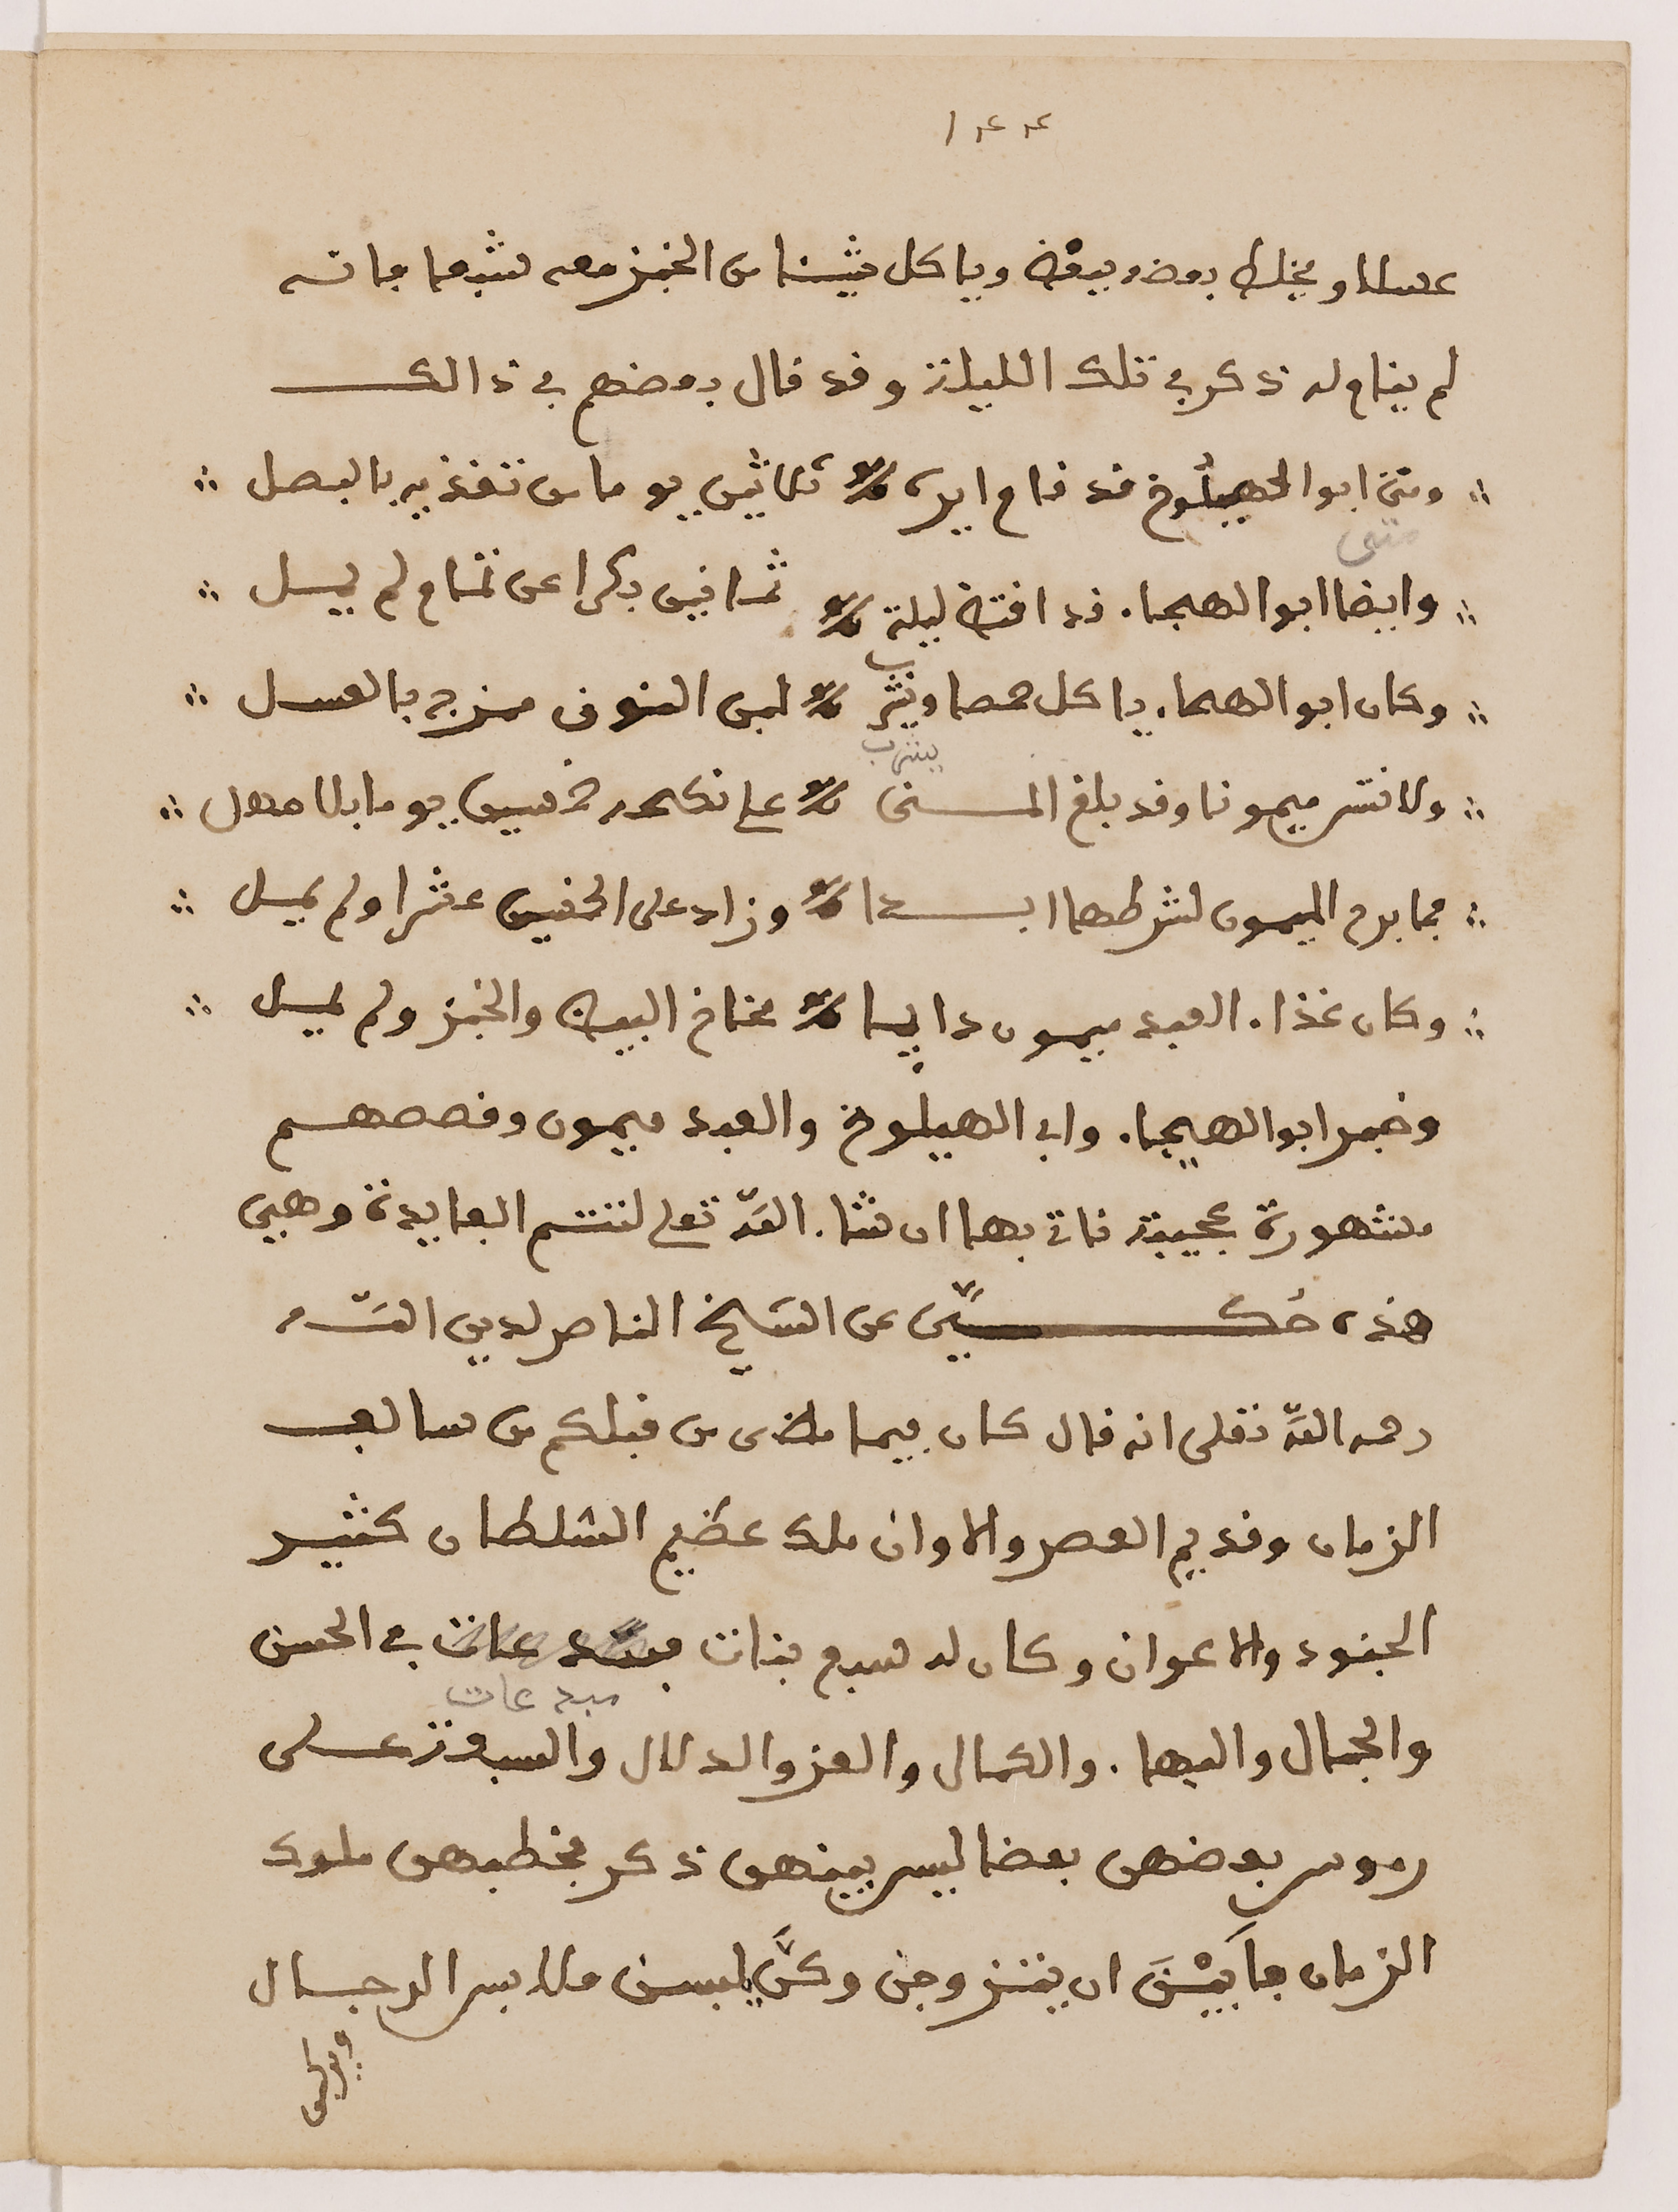 ١٤٤
عسلا ويخلط بعضه ببعض وياكل شيئا من الخبز معه شبعا فانه
لم ينام له ذكر في تلك الليلة وقد قال بعضهم في ذالك
ومتى ابوا الهيلوخ قد قام ايره ثلاثين يوما من تغذيه بالبصل
متى
وايضا ابوا الهيجاء قد افتض ليلة ثمانين بكرا عن تمام لم يمل
وكان ابوا الهجاء ياكل حمصا ويشرب لبن النوق مزج بالعسل
يشرب
ولا تنس ميمونا وقد بلغ المنى على نكحه خمسين يوما بلا مهل
فما برح الميمون لشرطها ابدا وزاد على الخمسين عشرا ولم يمل
وكان غذاء العبد ميمون دايما مخاخ البيض والخبز ولم يمل
وخبر ابوا الهيجاء وابي الهيلوخ والعبد ميمون وقصصهم
مشهورة عجيبة ناتي بها ان شاء الله تعلى لتتم الفايدة وهيى
هذه حُكيّى عن الشيخ الناصر لدين الله
رحمه الله تعلى انه قال كان فيما مضى من قبلكم من سالف
الزمان وقديم العصر والاوان ملك عظيم السلطان كثير
الجنود والاعوان وكان له سبع بنات مبدعات في الحسن
مبدعات
والجمال والبهاء والكمال والعز والدلال والسبعة على
روس بعضهن بعضا ليس بينهن ذكر فخطبهن ملوك
الزمان فأَبَيْنَ ان يتزوجن وكنَّ يلبسن ملابس الرجال
ويركبن